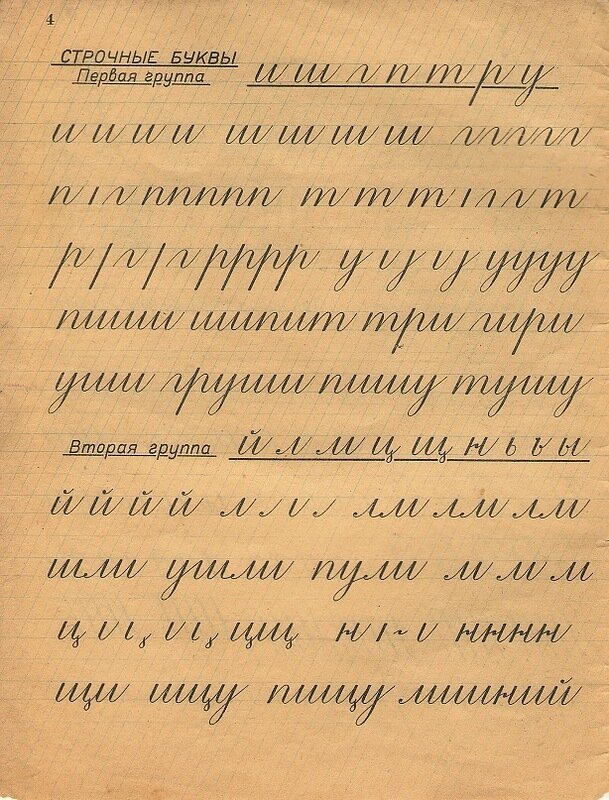 4
СТРОЧНЫЕ БУКВЫ
Первая группа и ш г п т р у
и и и и ш ш ш ш г г г г г
п г п п п п п т т т г г т
р г г р р р р у у у у у
пиши шипит три гири
уши груши пишу тушу
Вторая группа й л м ц щ н ь ъ ы
й й й й л лм лм лм
шли ушли пули м м м
ц ц щ н н н н н
щи ищу пищу лишний